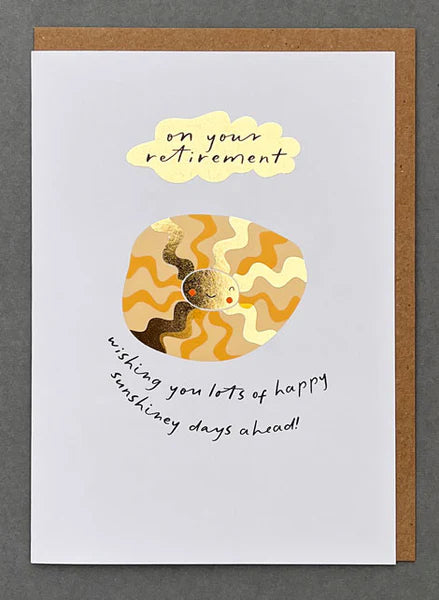 on your
retirement
wishing you lots of happy
sunshiney days ahead!